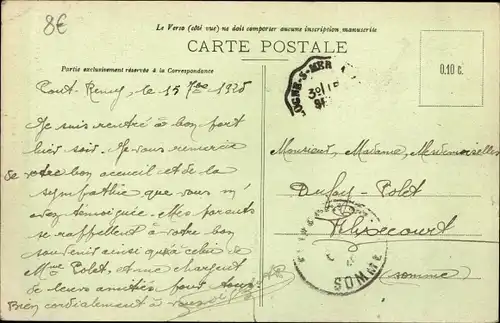 8€
Le Verso (côté vue) ne doit comporter aucune inscription manuscrite
CARTE POSTALE
Partie exclusivement réservée à la Correspondance
0.10 c.
le 15 7bre 1925
Je suis rentré à bon port
hier soir. Je vous remercie
de votre bon accueil et de la
sympathie que vous m'
avez témoignée. Mes parents
se rappellent à votre bon
souvenir ainsi qu'à celui de
Mme Polet, et me chargent
de leurs amitiés pour tous
Bien cordialement à vous
OGNE-S-MER
Monsieur, Madame, Mesdemoiselles
Dufay - Polet
Flixecourt
(somme)
SOMME